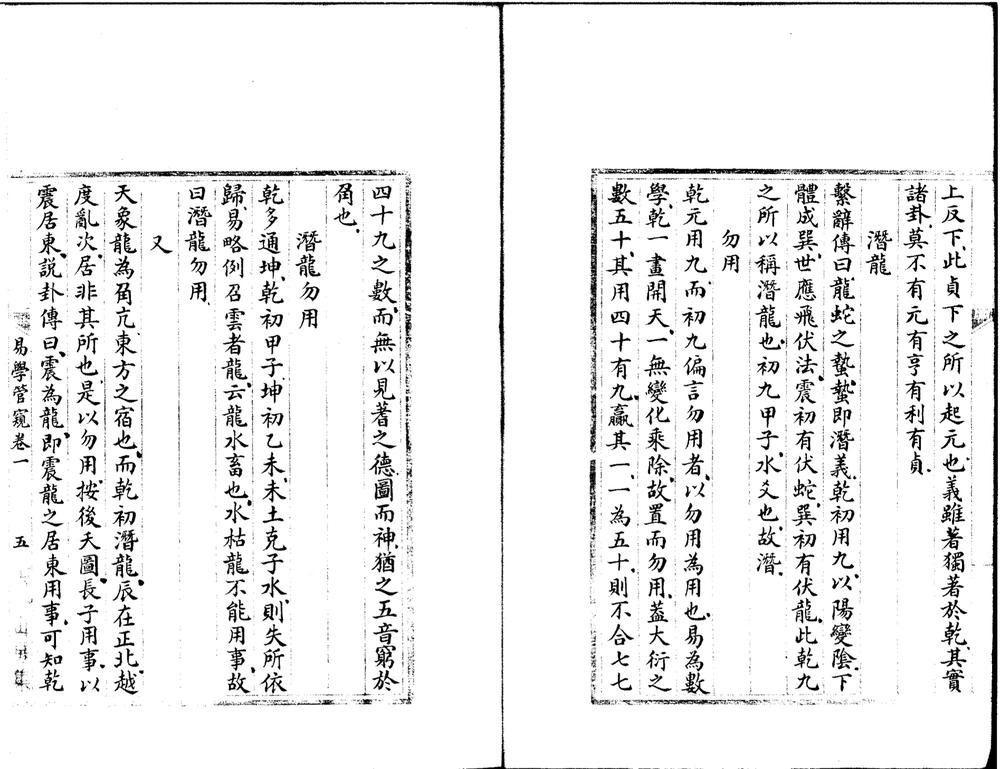 上反下、此貞下之所以起元也、義雖著獨著於乾、其實
諸卦、莫不有元有亨有利有貞、
潛龍
繫辭傳曰、龍蛇之蟄、蟄即潛義、乾初用九、以陽變陰、下
體成巽、世應飛伏法、震初有伏蛇、巽初有伏龍、此乾九
之所以稱潛龍也、初九甲子水爻也、故潛、
勿用
乾元用九、而初九偏言勿用者、以勿用為用也、易為數
學、乾一畫開天、一無變化乘除、故置而勿用、蓋大衍之
數五十、其用四十有九、贏其一、一為五十、則不合七七
四十九之數、而無以見蓍之德圓而神、猶之五音窮於
角也、
潛龍勿用
乾多通坤、乾初甲子坤初乙未、未土克子水、則失所依
歸、易略例召雲者龍、云龍水畜也、水枯龍不能用事、故
曰潛龍勿用、
又
天象龍為角亢東方之宿也、而乾初潛龍、辰在正北、越
度亂次、居非其所也、是以勿用、按後天圖、長子用事、以
震居東、說卦傳曰、震為龍、即震龍之居東用事、可知乾
易學管窺卷一
五